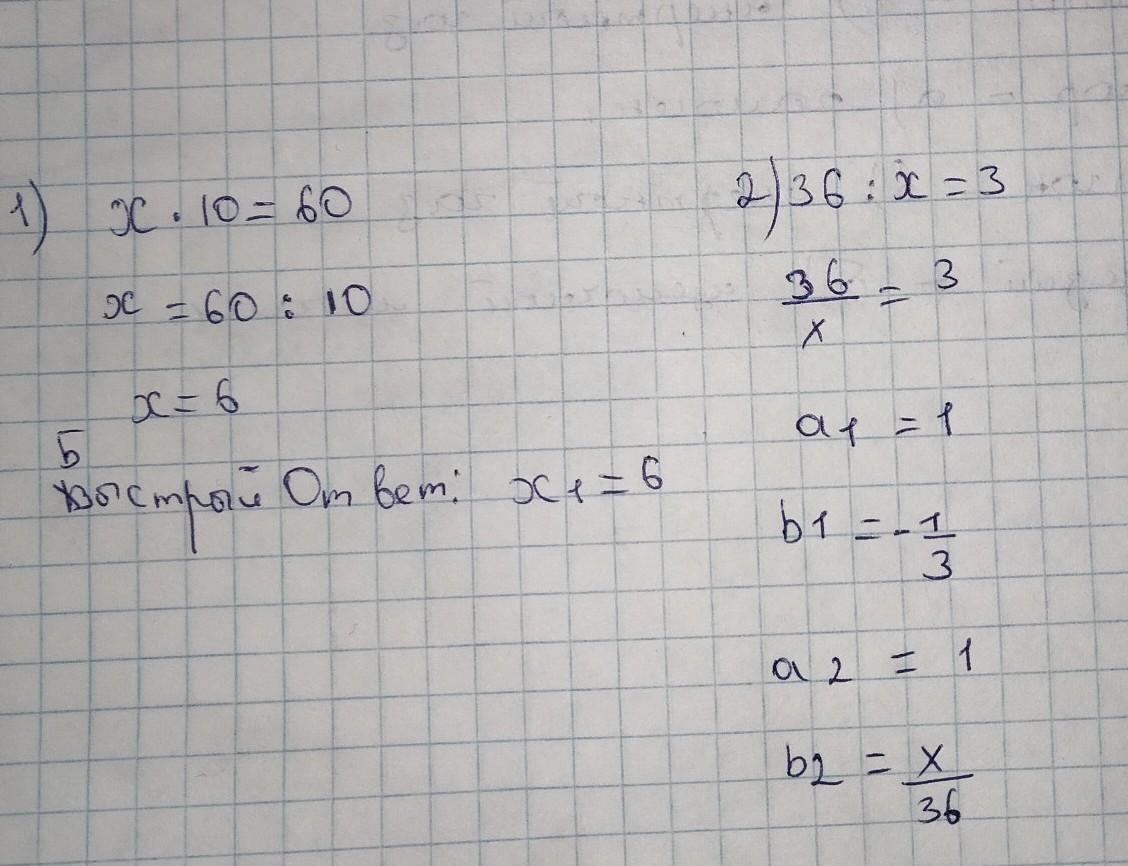 1) x · 10 = 60
x = 60 : 10
x = 6
Быстрый Ответ: x1 = 6
2) 36 : x = 3
36/x = 3
a1 = 1
b1 = -1/3
a2 = 1
b2 = x/36